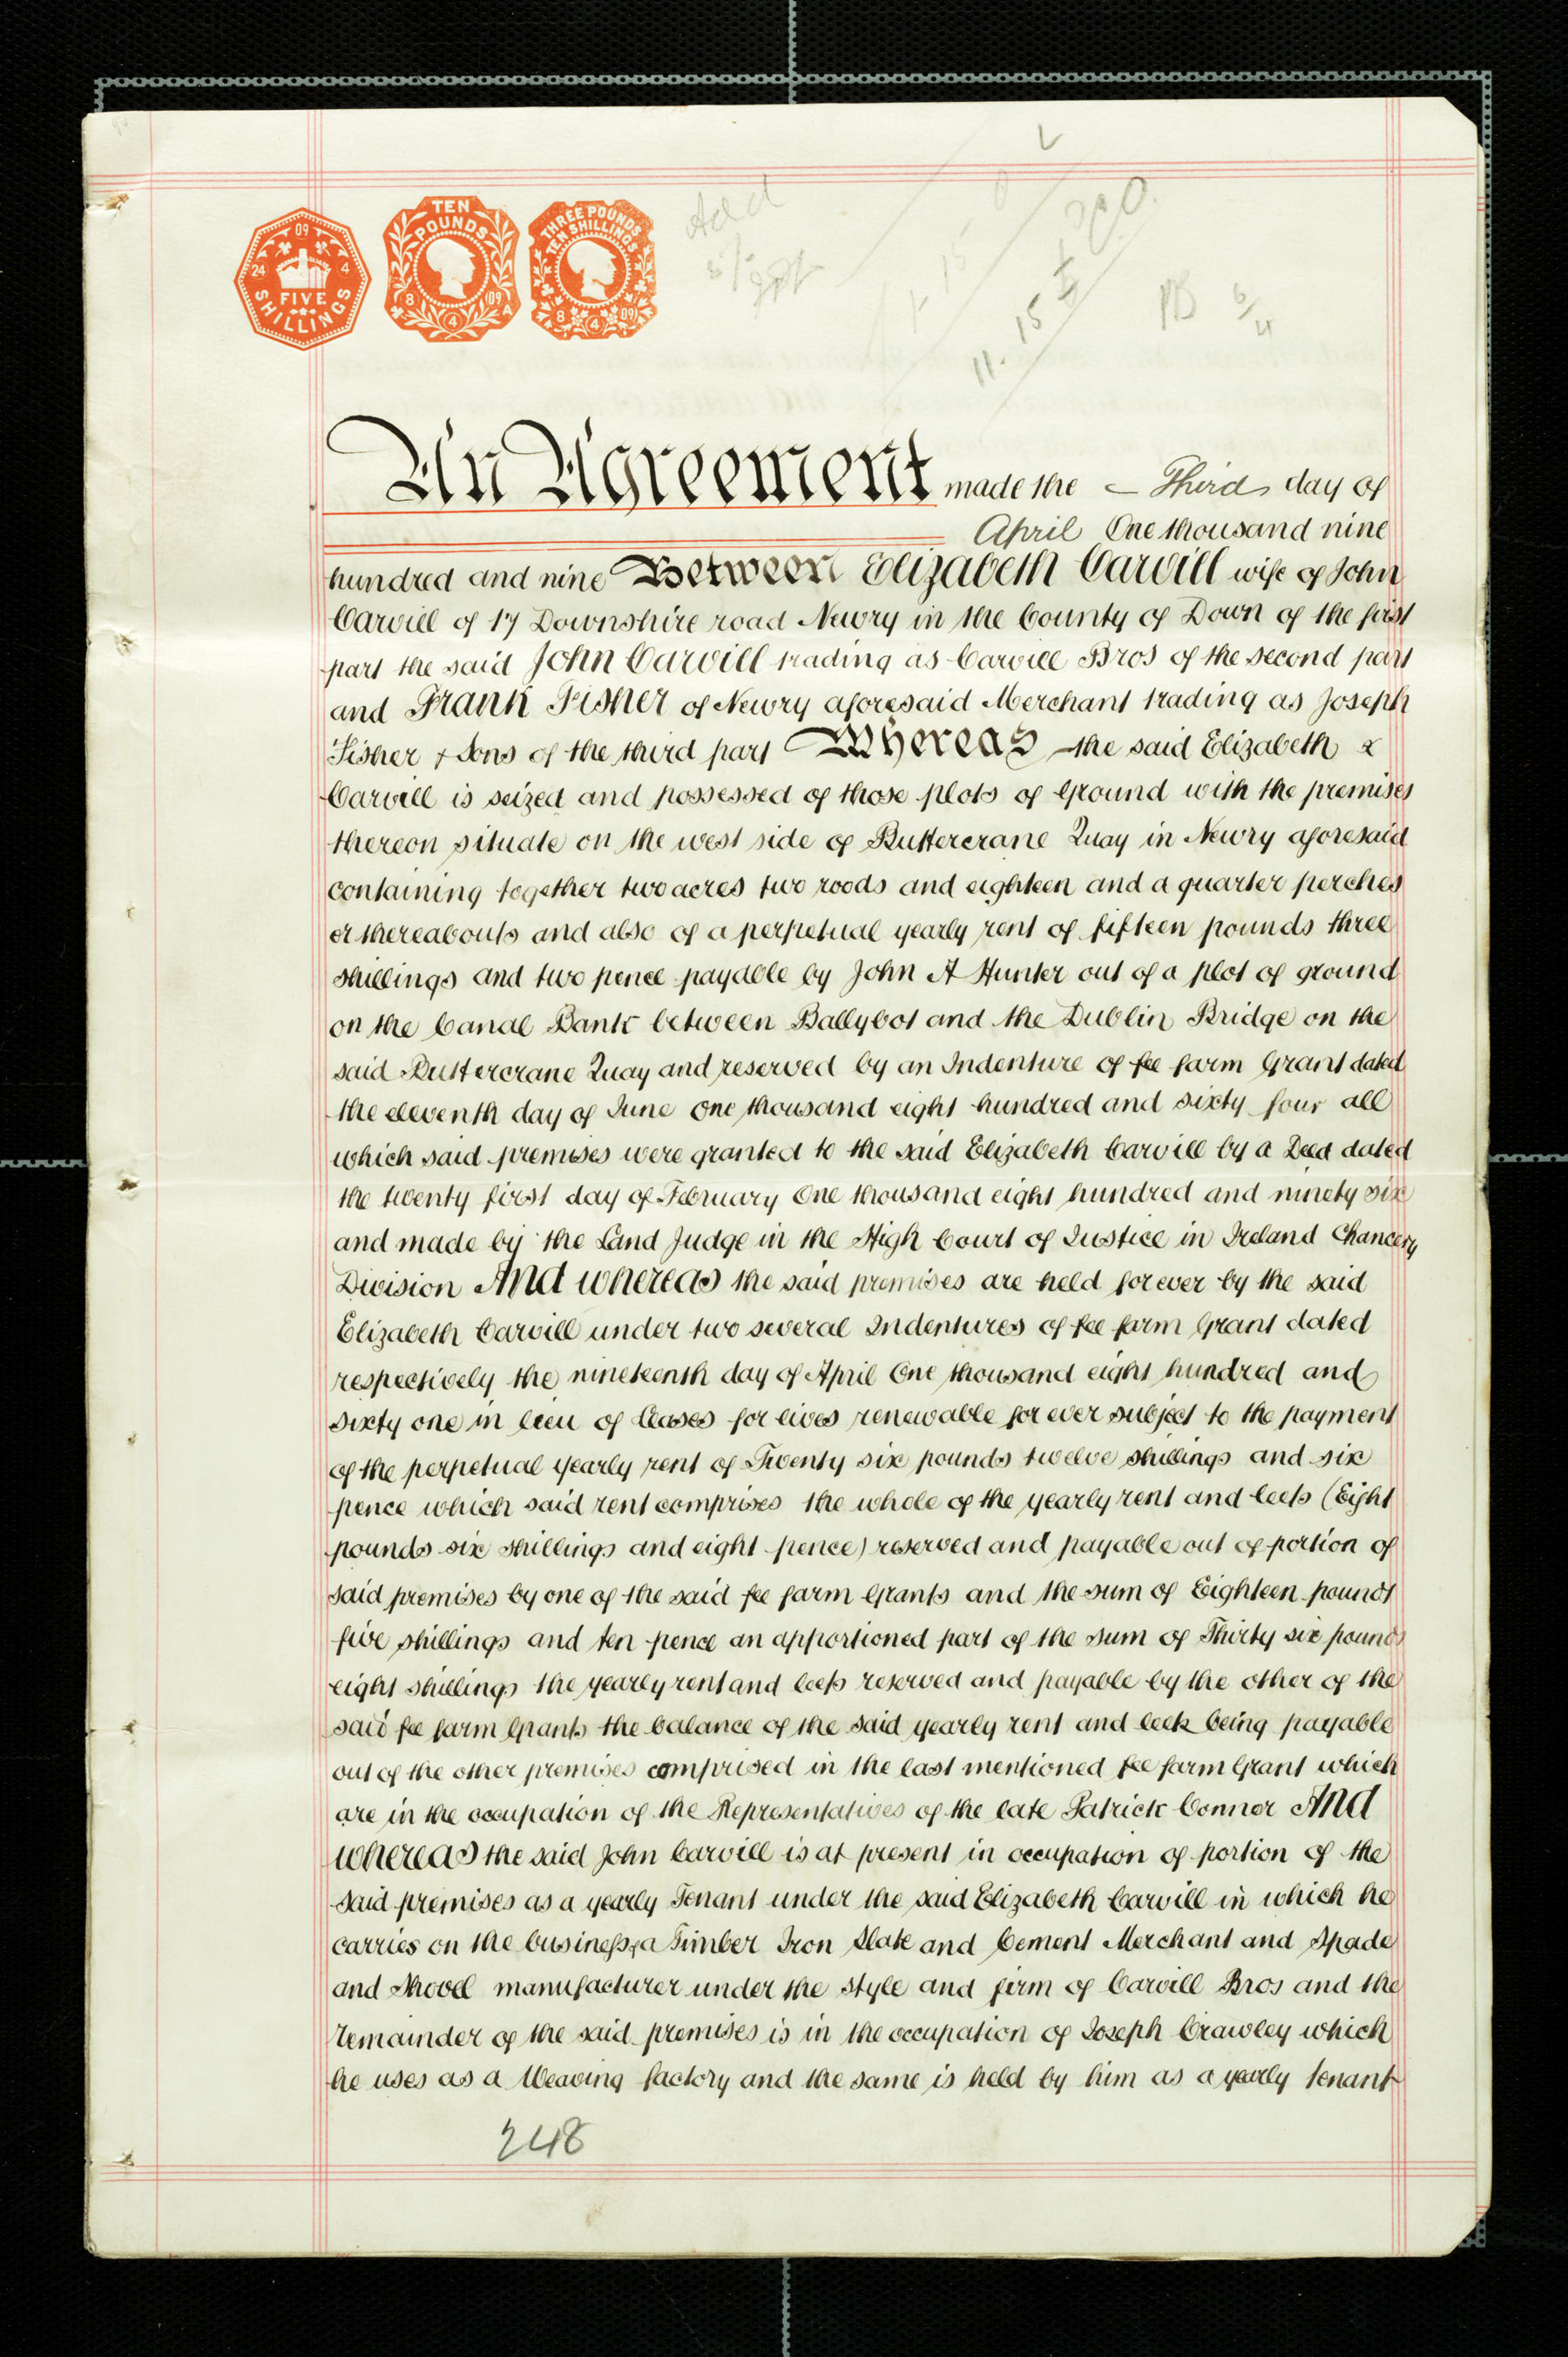 09
24 4
FIVE
SHILLINGS
TEN
POUNDS
8 09
4
THREE POUNDS
TEN SHILLINGS
8 4 09
Add
11. 15
An Agreement made the Third day of
April One thousand nine
hundred and nine Between Elizabeth Carvill wife of John
Carvill of 17 Downshire road Newry in the County of Down of the first
part the said John Carvill trading as Carvill Bros of the second part
and Frank Fisher of Newry aforesaid Merchant trading as Joseph
Fisher & Sons of the third part Whereas the said Elizabeth
Carvill is seized and possessed of those plots of Ground with the premises
thereon situate on the west side of Buttercrane Quay in Newry aforesaid
containing together two acres two roods and eighteen and a quarter perches
or thereabouts and also of a perpetual yearly rent of fifteen pounds three
shillings and two pence payable by John A Hunter out of a plot of ground
on the Canal Bank between Ballybot and the Dublin Bridge on the
said Buttercrane Quay and reserved by an Indenture of fee farm Grant dated
the eleventh day of June One thousand eight hundred and sixty four all
which said premises were granted to the said Elizabeth Carvill by a Deed dated
the twenty first day of February One thousand eight hundred and ninety six
and made by the Land Judge in the High Court of Justice in Ireland Chancery
Division And whereas the said premises are held for ever by the said
Elizabeth Carvill under two several Indentures of fee farm Grant dated
respectively the nineteenth day of April One thousand eight hundred and
sixty one in lieu of leases for lives renewable for ever subject to the payment
of the perpetual yearly rent of Twenty six pounds twelve shillings and six
pence which said rent comprises the whole of the yearly rent and leets (Eight
pounds six shillings and eight pence) reserved and payable out of portion of
said premises by one of the said fee farm Grants and the sum of Eighteen pounds
five shillings and ten pence an apportioned part of the sum of Thirty six pounds
eight shillings the yearly rent and leets reserved and payable by the other of the
said fee farm Grants the balance of the said yearly rent and leek being payable
out of the other premises comprised in the last mentioned fee farm Grant which
are in the occupation of the Representatives of the late Patrick Connor And
whereas the said John Carvill is at present in occupation of portion of the
said premises as a yearly Tenant under the said Elizabeth Carvill in which he
carries on the business of a Timber Iron Slate and Cement Merchant and Spade
and Shovel manufacturer under the style and firm of Carvill Bros and the
remainder of the said premises is in the occupation of Joseph Crawley which
he uses as a Weaving factory and the same is held by him as a yearly tenant
248